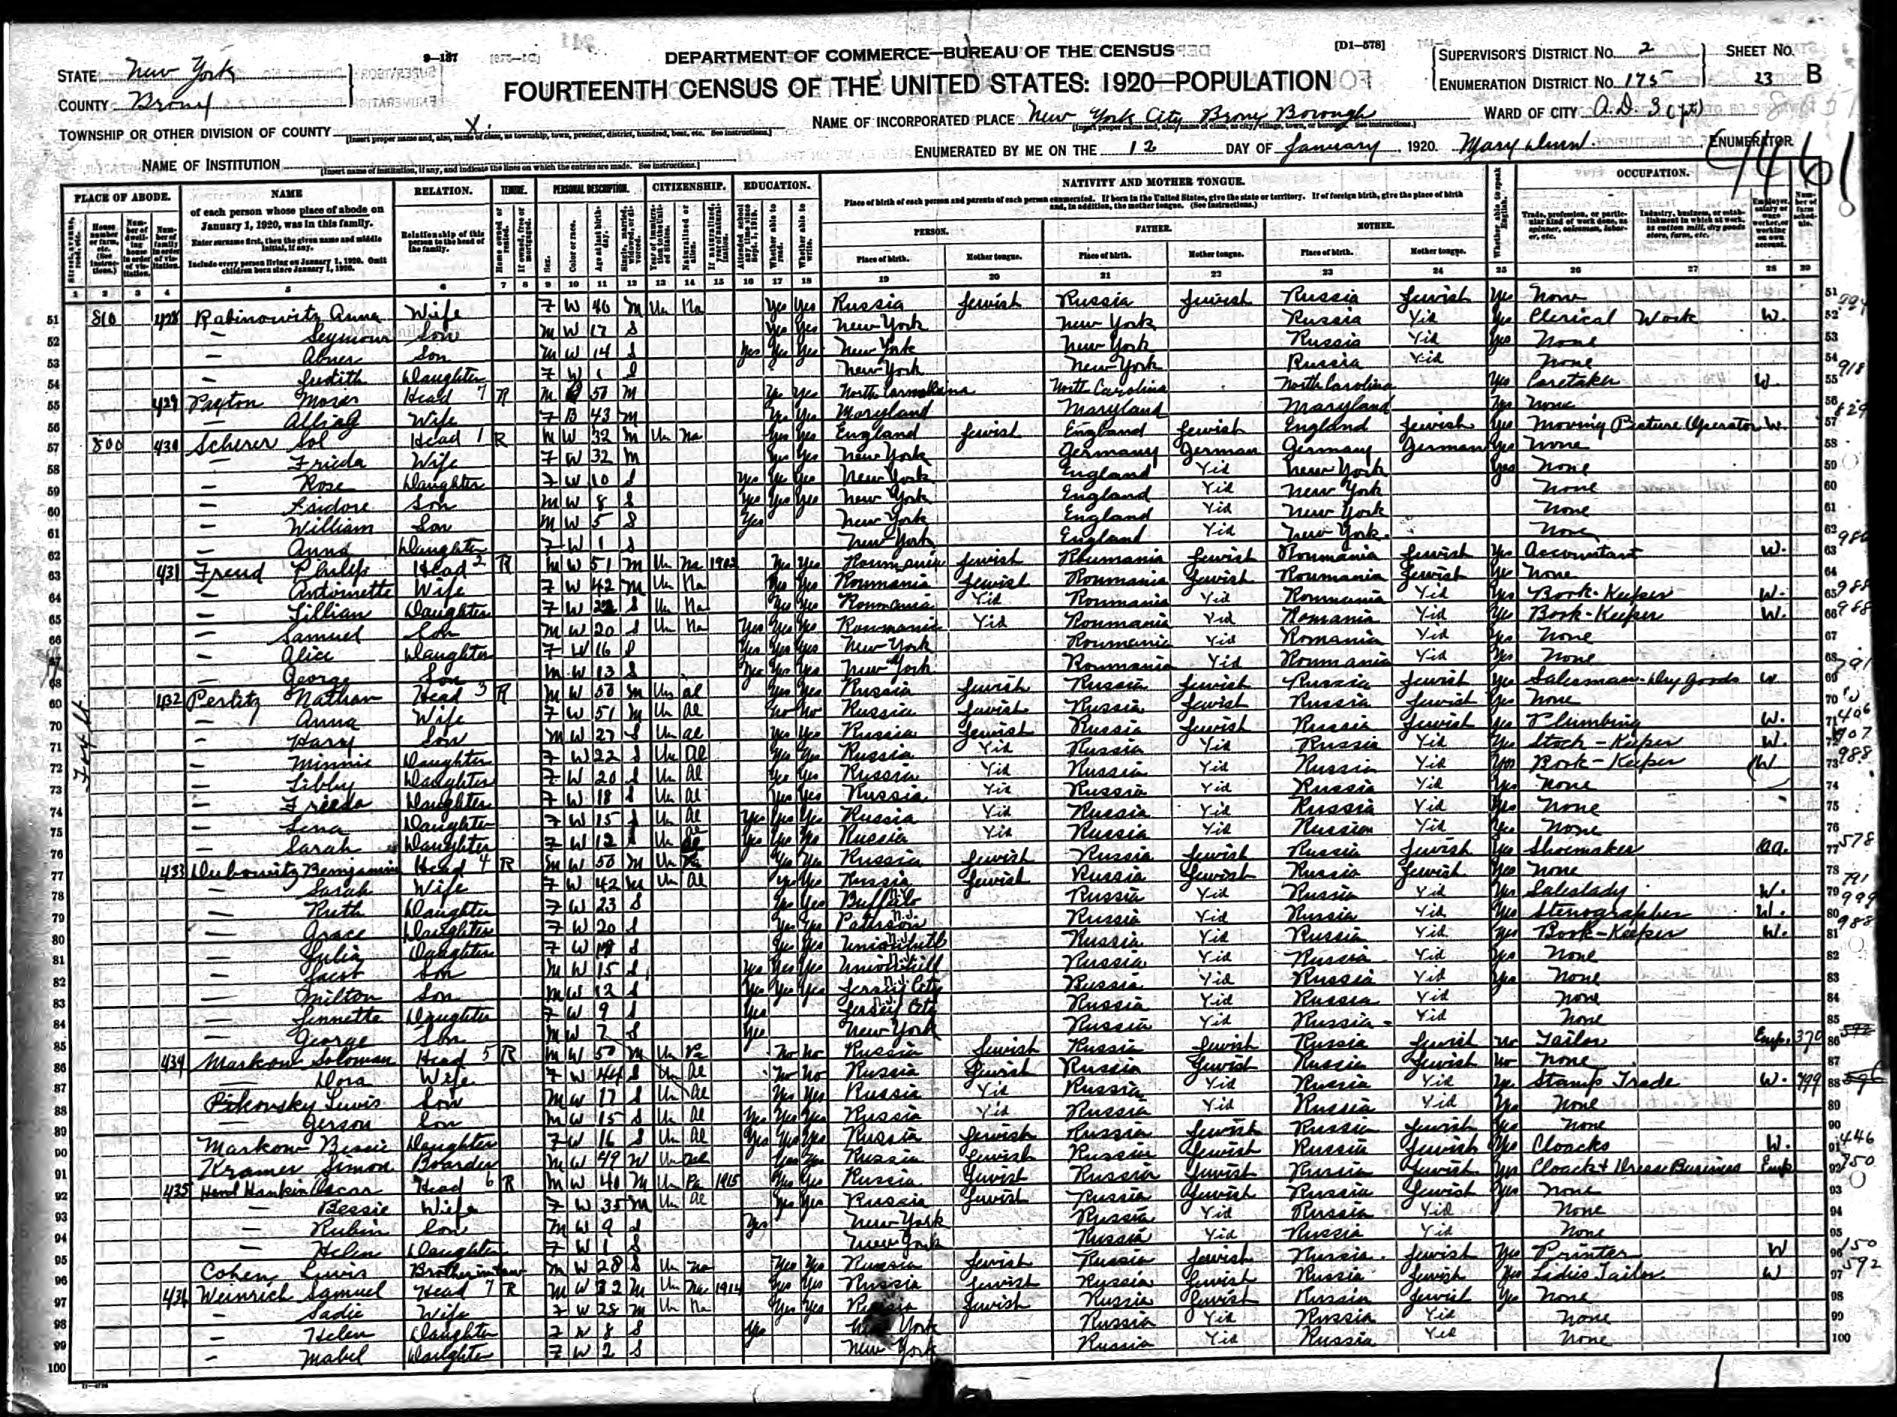 9—137
DEPARTMENT OF COMMERCE—BUREAU OF THE CENSUS
[D1—578]
FOURTEENTH CENSUS OF THE UNITED STATES: 1920—POPULATION
STATE New York
COUNTY Bronx
SUPERVISOR'S DISTRICT NO. 2
ENUMERATION DISTRICT NO. 175
SHEET NO. 23 B
TOWNSHIP OR OTHER DIVISION OF COUNTY X.
NAME OF INCORPORATED PLACE New York City Bronx Borough
WARD OF CITY A.D. 3 (pt)
NAME OF INSTITUTION
ENUMERATED BY ME ON THE 12 DAY OF January, 1920. Mary ENUMERATOR
PLACE OF ABODE. NAME RELATION. TENURE. PERSONAL DESCRIPTION. CITIZENSHIP. EDUCATION. NATIVITY AND MOTHER TONGUE. OCCUPATION.
of each person whose place of abode on January 1, 1920, was in this family.
Enter surname first, then the given name and middle initial, if any.
Include every person living on January 1, 1920. Omit children born since January 1, 1920.
Relationship of this person to the head of the family.
Place of birth of each person and parents of each person enumerated. If born in the United States, give the state or territory. If of foreign birth, give the place of birth and, in addition, the mother tongue. (See instructions.)
PERSON. FATHER. MOTHER.
Place of birth. Mother tongue. Place of birth. Mother tongue. Place of birth. Mother tongue.
1 2 3 4 5 6 7 8 9 10 11 12 13 14 15 16 17 18 19 20 21 22 23 24 25 26 27 28 29
51 810 428 Rabinowitz Anna Wife F W 40 M Un Na Yes Yes Russia Jewish Russia Jewish Russia Jewish Yes None
52 — Seymour Son M W 17 S Yes Yes New York New York Russia Yid Yes Clerical Work W.
53 — Abner Son M W 14 S Yes Yes Yes New York New York Russia Yid Yes None
54 — Judith Daughter F W 1 S New York New York Russia Yid None
55 429 Payton Moses Head 7 R M 50 M Yes Yes North Carolina North Carolina Yes Caretaker W.
56 — Wife F B 43 M Yes Yes Maryland Maryland Maryland Yes None
57 800 430 Scherer Sol Head 1 R M W 32 M Un Na Yes Yes England Jewish England Jewish England Jewish Yes Moving Picture Operator W.
58 — Frieda Wife F W 32 M Yes Yes New York Germany German Germany German Yes None
59 — Rose Daughter F W 10 S Yes Yes Yes New York England Yid New York Yes None
60 — Isidore Son M W 8 S Yes Yes Yes New York England Yid New York None
61 — William Son M W 5 S Yes New York England Yid New York None
62 — Anna Daughter F W 1 S New York England Yid New York. None
63 431 Freud Philip Head 2 R M W 51 M Un Na 1902 Yes Yes Roumania Jewish Roumania Jewish Roumania Jewish Yes Accountant W.
64 — Antoinette Wife F W 42 M Un Na Yes Yes Roumania Jewish Roumania Jewish Roumania Jewish Yes None
65 — Lillian Daughter F W 22 S Un Na Yes Yes Roumania Yid Roumania Yid Roumania Yid Yes Book-Keeper W.
66 — Samuel Son M W 20 S Un Na Yes Yes Yes Roumania Yid Roumania Yid Romania Yid Yes Book-Keeper W.
67 — Alice Daughter F W 16 S Yes Yes Yes New York Roumania Yid Romania Yid Yes None
68 — George Son M W 13 S Yes Yes Yes New York Roumania Yid Roumania Yid Yes None
69 432 Perlitz Nathan Head 3 R M W 50 M Un Al Yes Yes Russia Jewish Russia Jewish Russia Jewish Yes Salesman-Dry Goods W
70 — Anna Wife F W 51 M Un Al No No Russia Jewish Russia Jewish Russia Jewish Yes None
71 — Harry Son M W 27 S Un Al Yes Yes Russia Jewish Russia Jewish Russia Jewish Yes Plumbing W.
72 — Minnie Daughter F W 22 S Un Al Yes Yes Russia Yid Russia Yid Russia Yid Yes Stock-Keeper W.
73 — Libby Daughter F W 20 S Un Al Yes Yes Russia Yid Russia Yid Russia Yid Yes Book-Keeper W
74 — Frieda Daughter F W 18 S Un Al Yes Yes Russia Yid Russia Yid Russia Yid Yes None
75 — Lena Daughter F W 15 S Un Al Yes Yes Yes Russia Yid Russia Yid Russia Yid Yes None
76 — Sarah Daughter F W 12 S Un Al Yes Yes Yes Russia Yid Russia Yid Russia Yid Yes None
77 433 Dubowitz Benjamin Head 4 R M W 50 M Un Yes Yes Russia Jewish Russia Jewish Russia Jewish Yes Shoemaker OA.
78 — Sarah Wife F W 42 M Un Al Yes Yes Russia Jewish Russia Jewish Russia Jewish Yes None
79 — Ruth Daughter F W 23 S Yes Yes Buffalo Russia Yid Russia Yid Yes Saleslady W.
80 — Grace Daughter F W 20 S Yes Yes Paterson N.J. Russia Yid Russia Yid Yes Stenographer W.
81 — Julia Daughter F W 18 S Yes Yes Union Hill Russia Yid Russia Yid Yes Book-Keeper W.
82 — Jacob Son M W 15 S Yes Yes Yes Union Hill N.J. Russia Yid Russia Yid Yes None
83 — Milton Son M W 12 S Yes Yes Yes Jersey City N.J. Russia Yid Russia Yid Yes None
84 — Jennette Daughter F W 9 S Yes Jersey City N.J. Russia Yid Russia Yid None
85 — George Son M W 7 S Yes New York Russia Yid Russia Yid None
86 434 Markow Soloman Head 5 R M W 50 M Un Pa No No Russia Jewish Russia Jewish Russia Jewish No Tailor Emp. 370
87 — Dora Wife F W 44 S Un Al No No Russia Jewish Russia Jewish Russia Jewish No None
88 Pitkovsky Lewis Son M W 17 S Un Al Yes Yes Russia Yid Russia Yid Russia Yid Yes Stamp Trade W. 799
89 — Gerson Son M W 15 S Un Al Yes Yes Yes Russia Yid Russia Yid Russia Yid Yes None
90 Markow Bessie Daughter F W 16 S Un Al Yes Yes Yes Russia Jewish Russia Jewish Russia Jewish Yes None
91 Kramer Simon Boarder M W 49 W Un Yes Yes Russia Jewish Russia Jewish Russia Jewish Yes Cloacks W.
92 435 Hankin Oscar Head 6 R M W 40 M Un Pa 1915 Yes Yes Russia Jewish Russia Jewish Russia Jewish Yes Cloack + Dresse Business Emp
93 — Bessie Wife F W 35 M Un Al Yes Yes Russia Jewish Russia Jewish Russia Jewish Yes None
94 — Rubin Son M W 9 S Yes New York Russia Yid Russia Yid None
95 — Helen Daughter F W 1 S New York Russia Yid Russia Yid None
96 Cohen Lewis Brother in law M W 28 S Un Na Yes Yes Russia Jewish Russia Jewish Russia Jewish Yes Printer W
97 436 Weinrich Samuel Head 7 R M W 32 M Un Na 1914 Yes Yes Russia Jewish Russia Jewish Russia Jewish Yes Ladies Tailor W
98 — Sadie Wife F W 28 M Un Na Yes Yes Russia Jewish Russia Jewish Russia Jewish Yes None
99 — Helen Daughter F W 8 S Yes New York Russia Yid Russia Yid None
100 — Mabel Daughter F W 2 S New York Russia Yid Russia Yid None